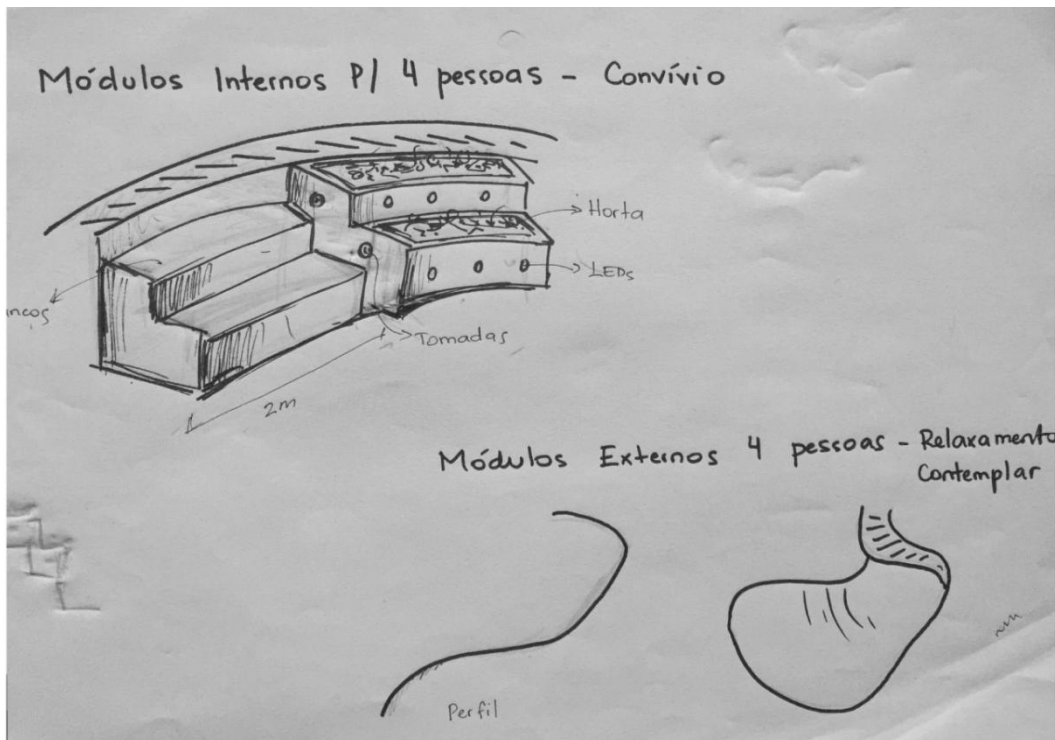 Módulos Internos P/ 4 pessoas - Convívio
Horta
LEDs
Tomadas
2m
Módulos Externos 4 pessoas - Relaxamento
Contemplar
Perfil